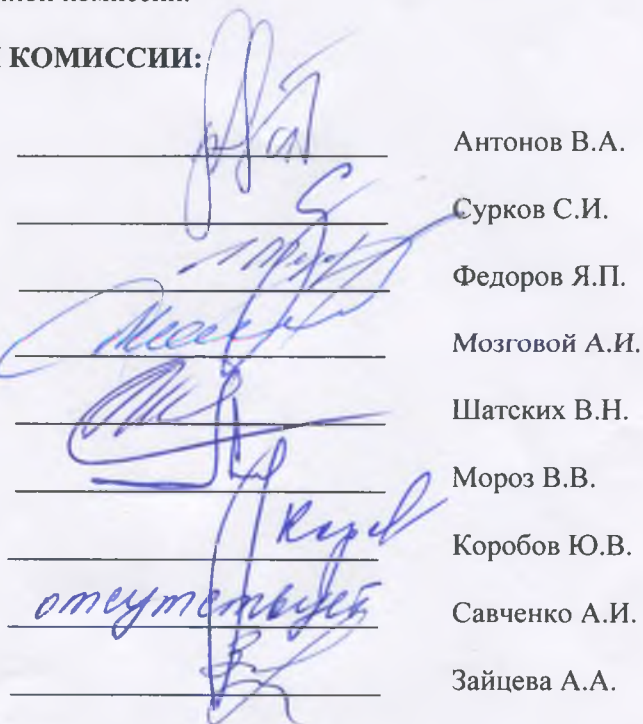 КОМИССИИ:
Антонов В.А.
Сурков С.И.
Федоров Я.П.
Мозговой А.И.
Шатских В.Н.
Мороз В.В.
Коробов Ю.В.
отсутствует Савченко А.И.
Зайцева А.А.